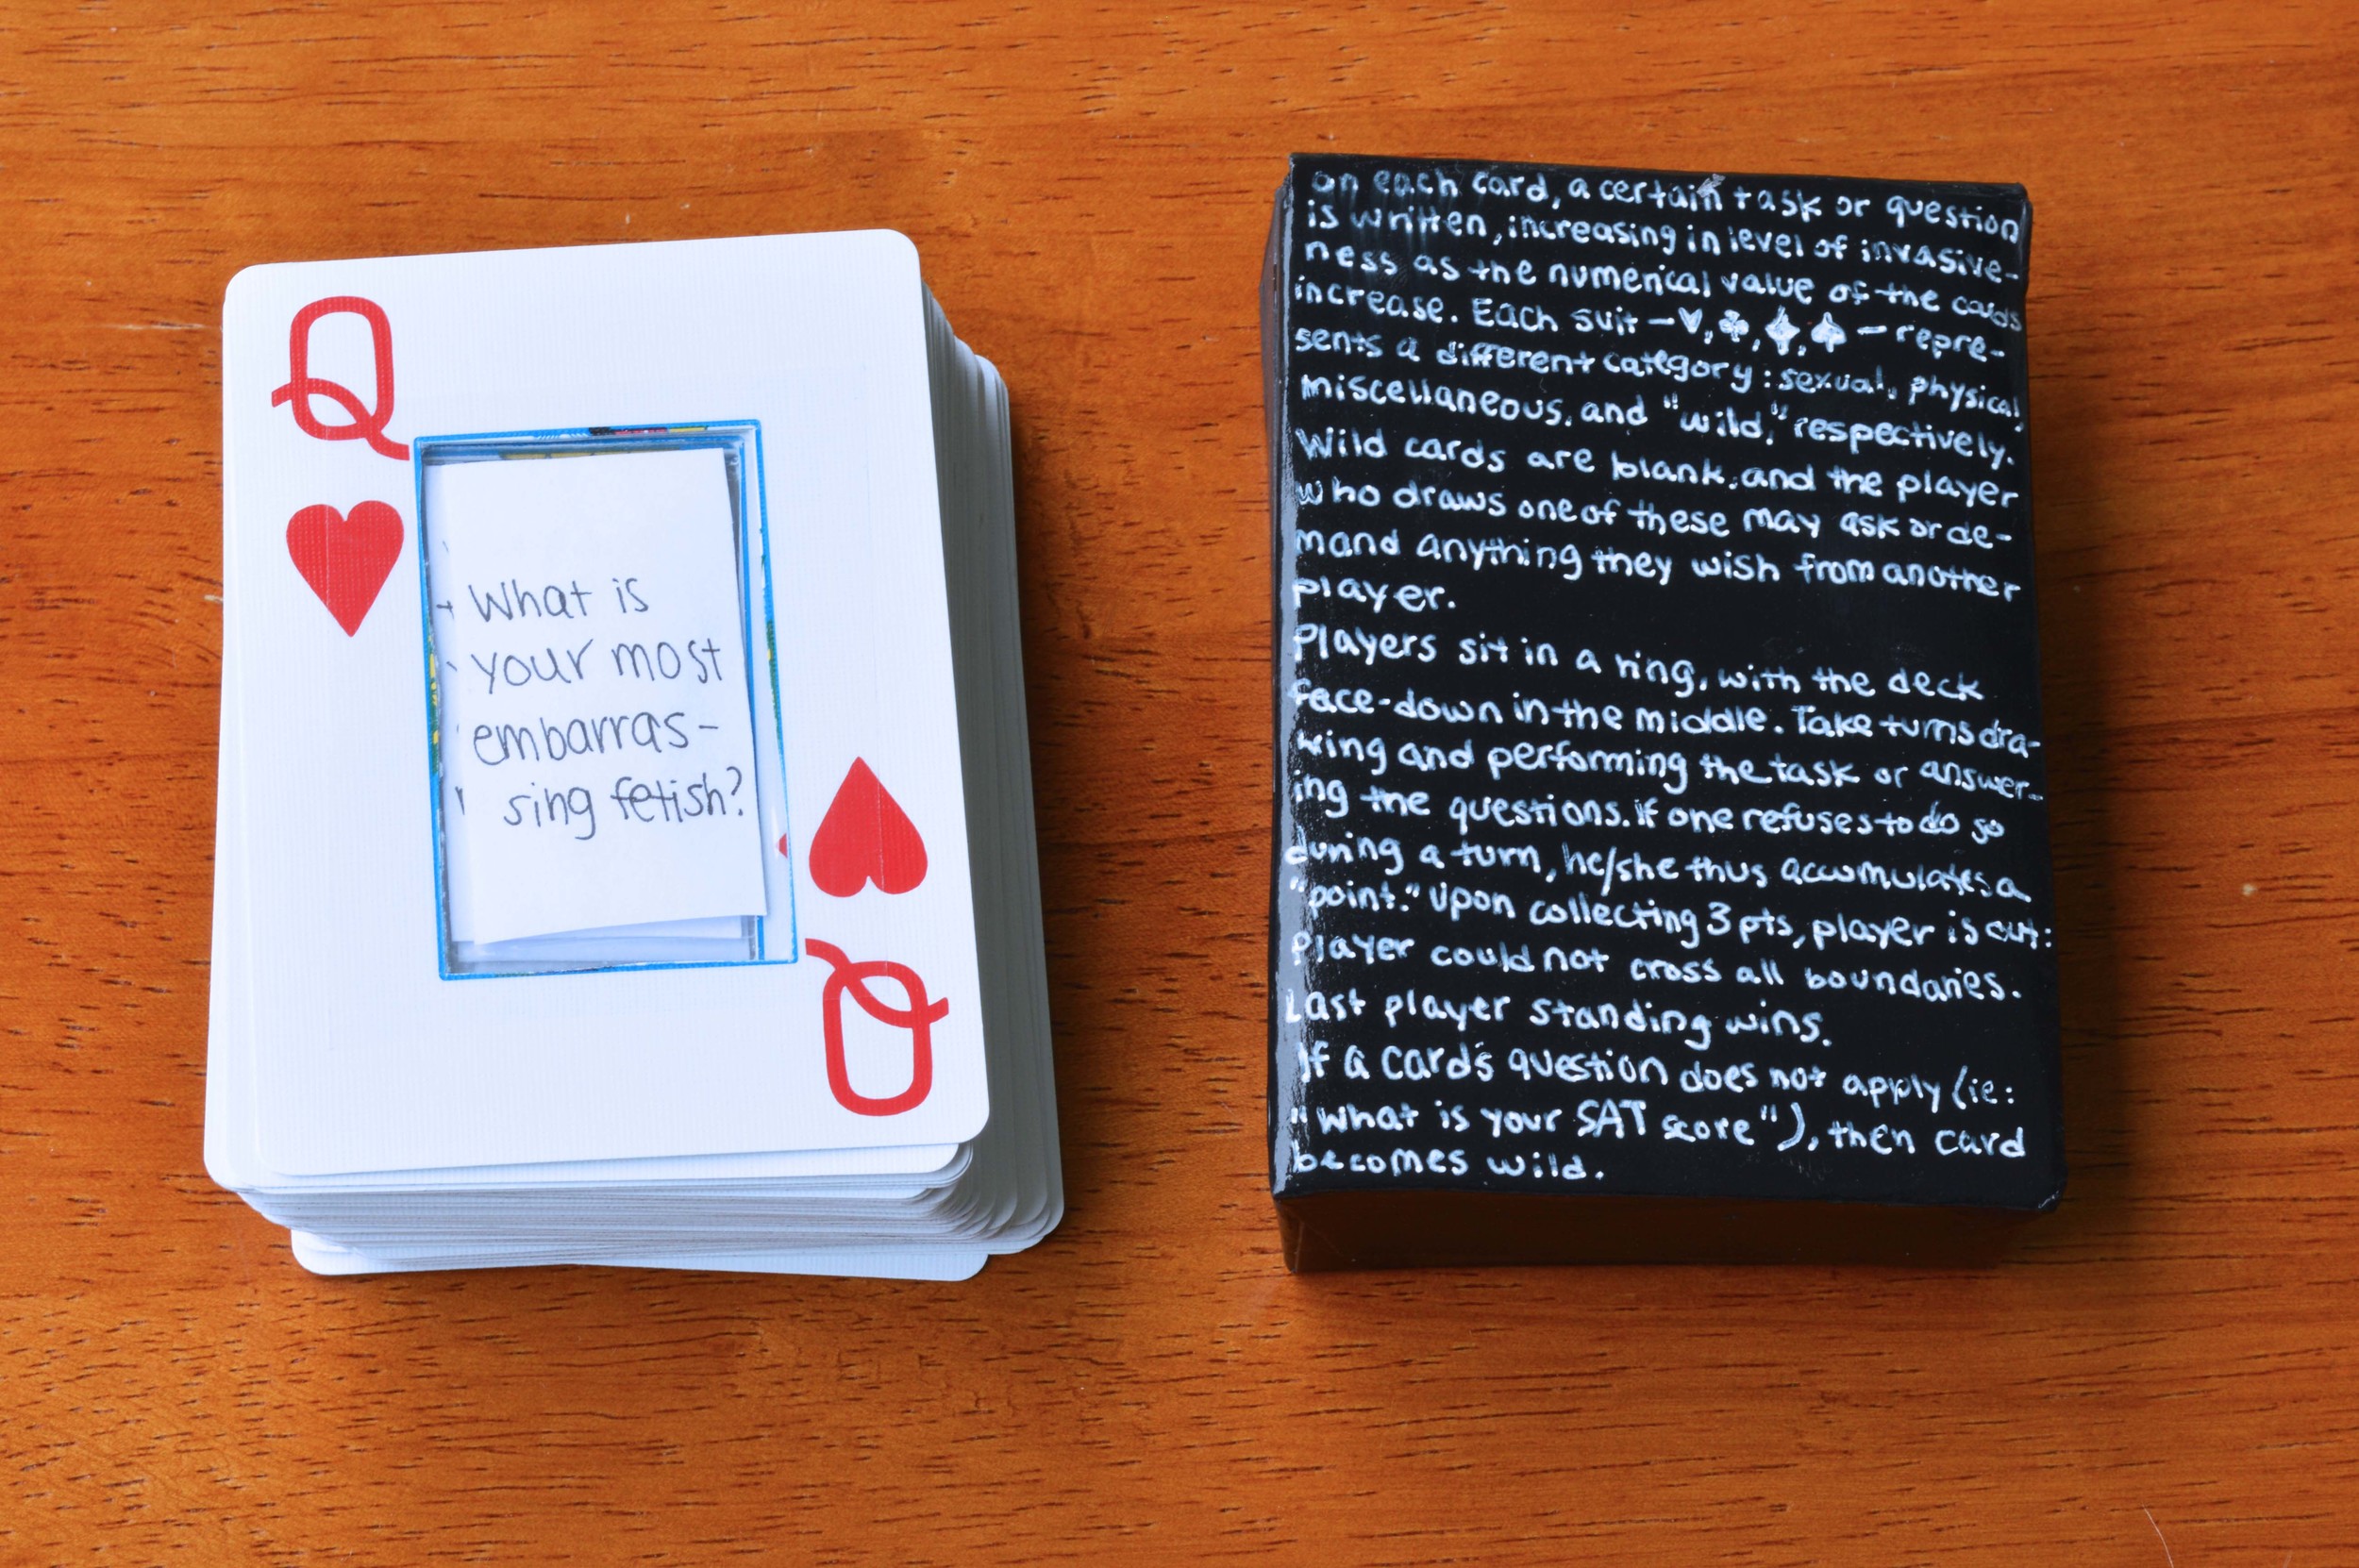 Q
What is
your most
embarras-
sing fetish?
Q
on each card, a certain task or question
is written, increasing in level of invasive-
ness as the numerical value of the cards
increase. Each suit – ♥, ♣, ♦, ♠ – repre-
sents a different category: sexual, physical,
miscellaneous, and "wild," respectively.
Wild cards are blank, and the player
who draws one of these may ask or de-
mand anything they wish from another
player.
Players sit in a ring, with the deck
face-down in the middle. Take turns dra-
wing and performing the task or answer-
ing the questions. If one refuses to do so
during a turn, he/she thus accumulates a
"point." Upon collecting 3 pts, player is out:
Player could not cross all boundaries.
Last player standing wins.
If a card's question does not apply (ie:
"what is your SAT score"), then card
becomes wild.